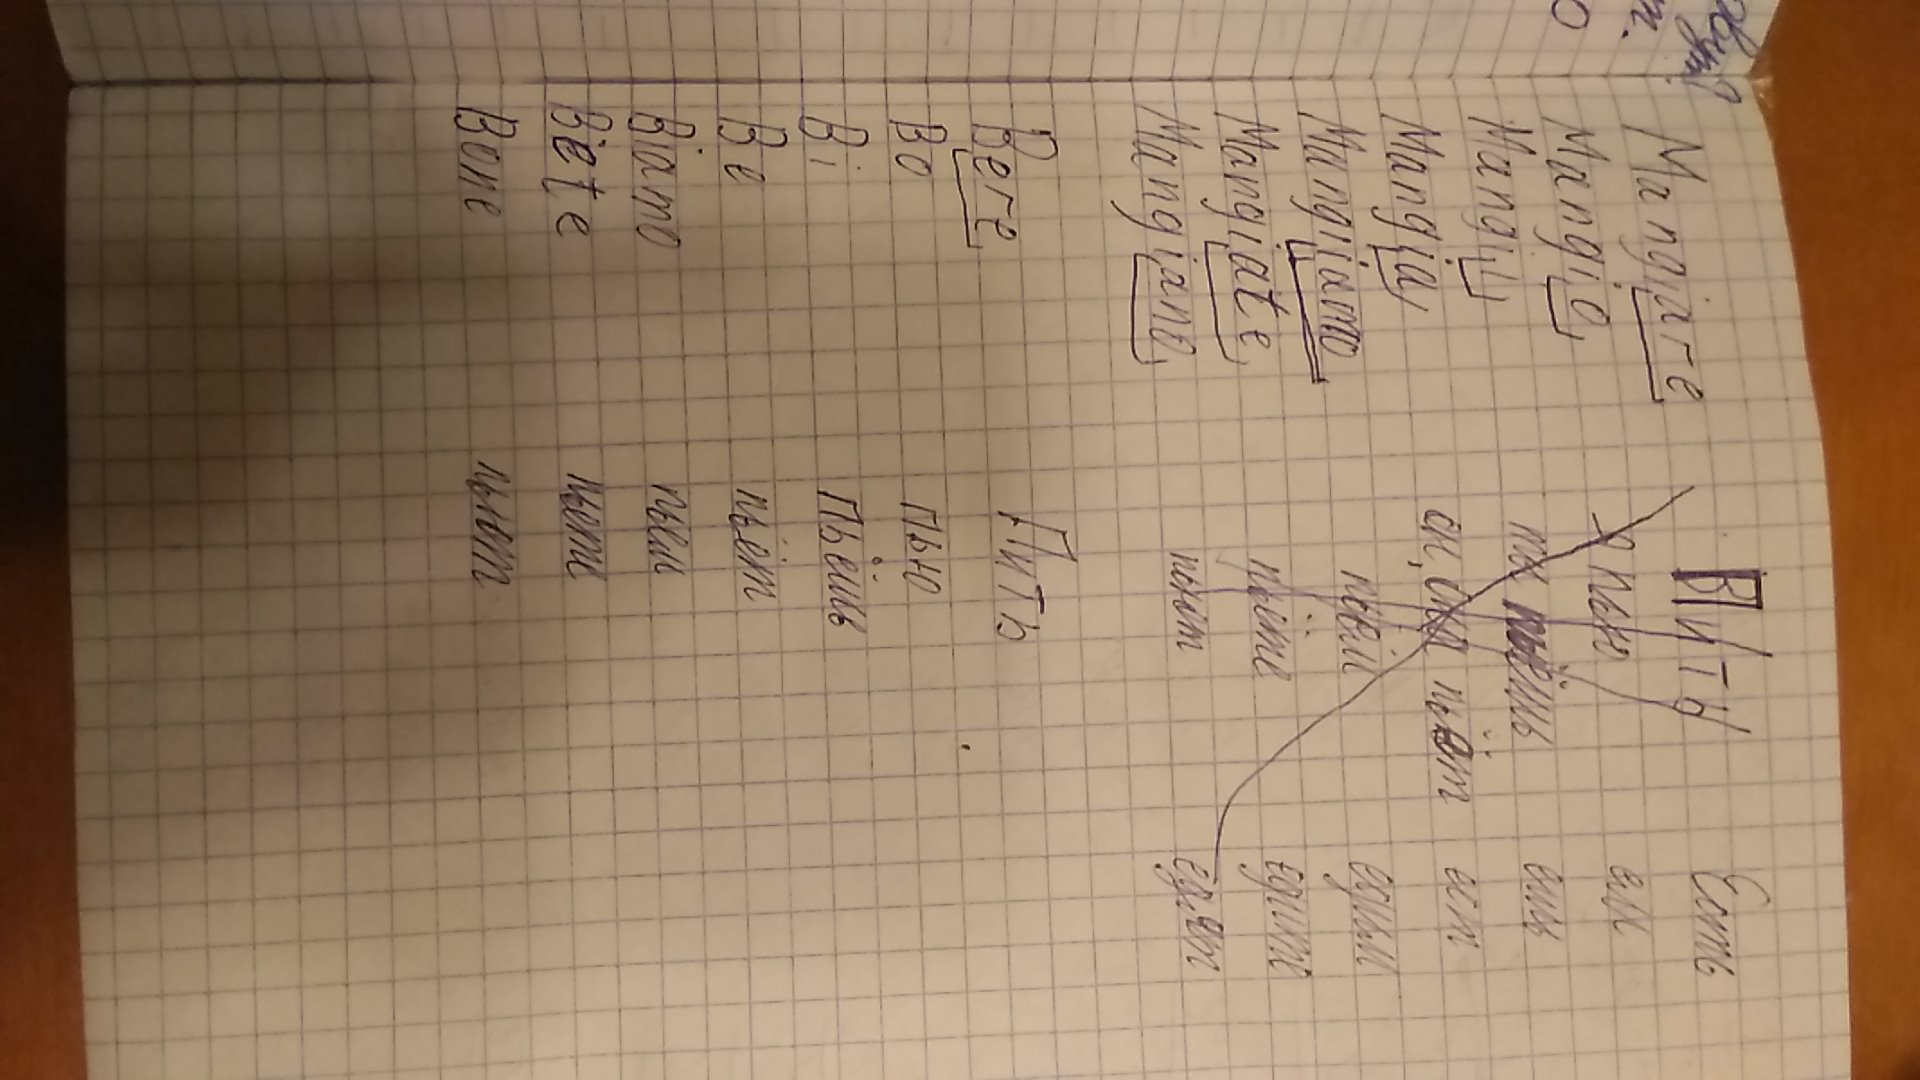 Mangiare Пить Есть
Mangio я пью ем
Mangi ты пьёшь ешь
Mangia он, она пьёт ест
Mangiamo пьём едим
Mangiate пьёте едите
Mangiano пьют едят
Bere Пить
Bo пью
Bi пьёшь
Be пьёт
Biamo пьем
Bete пьете
Bone пьют